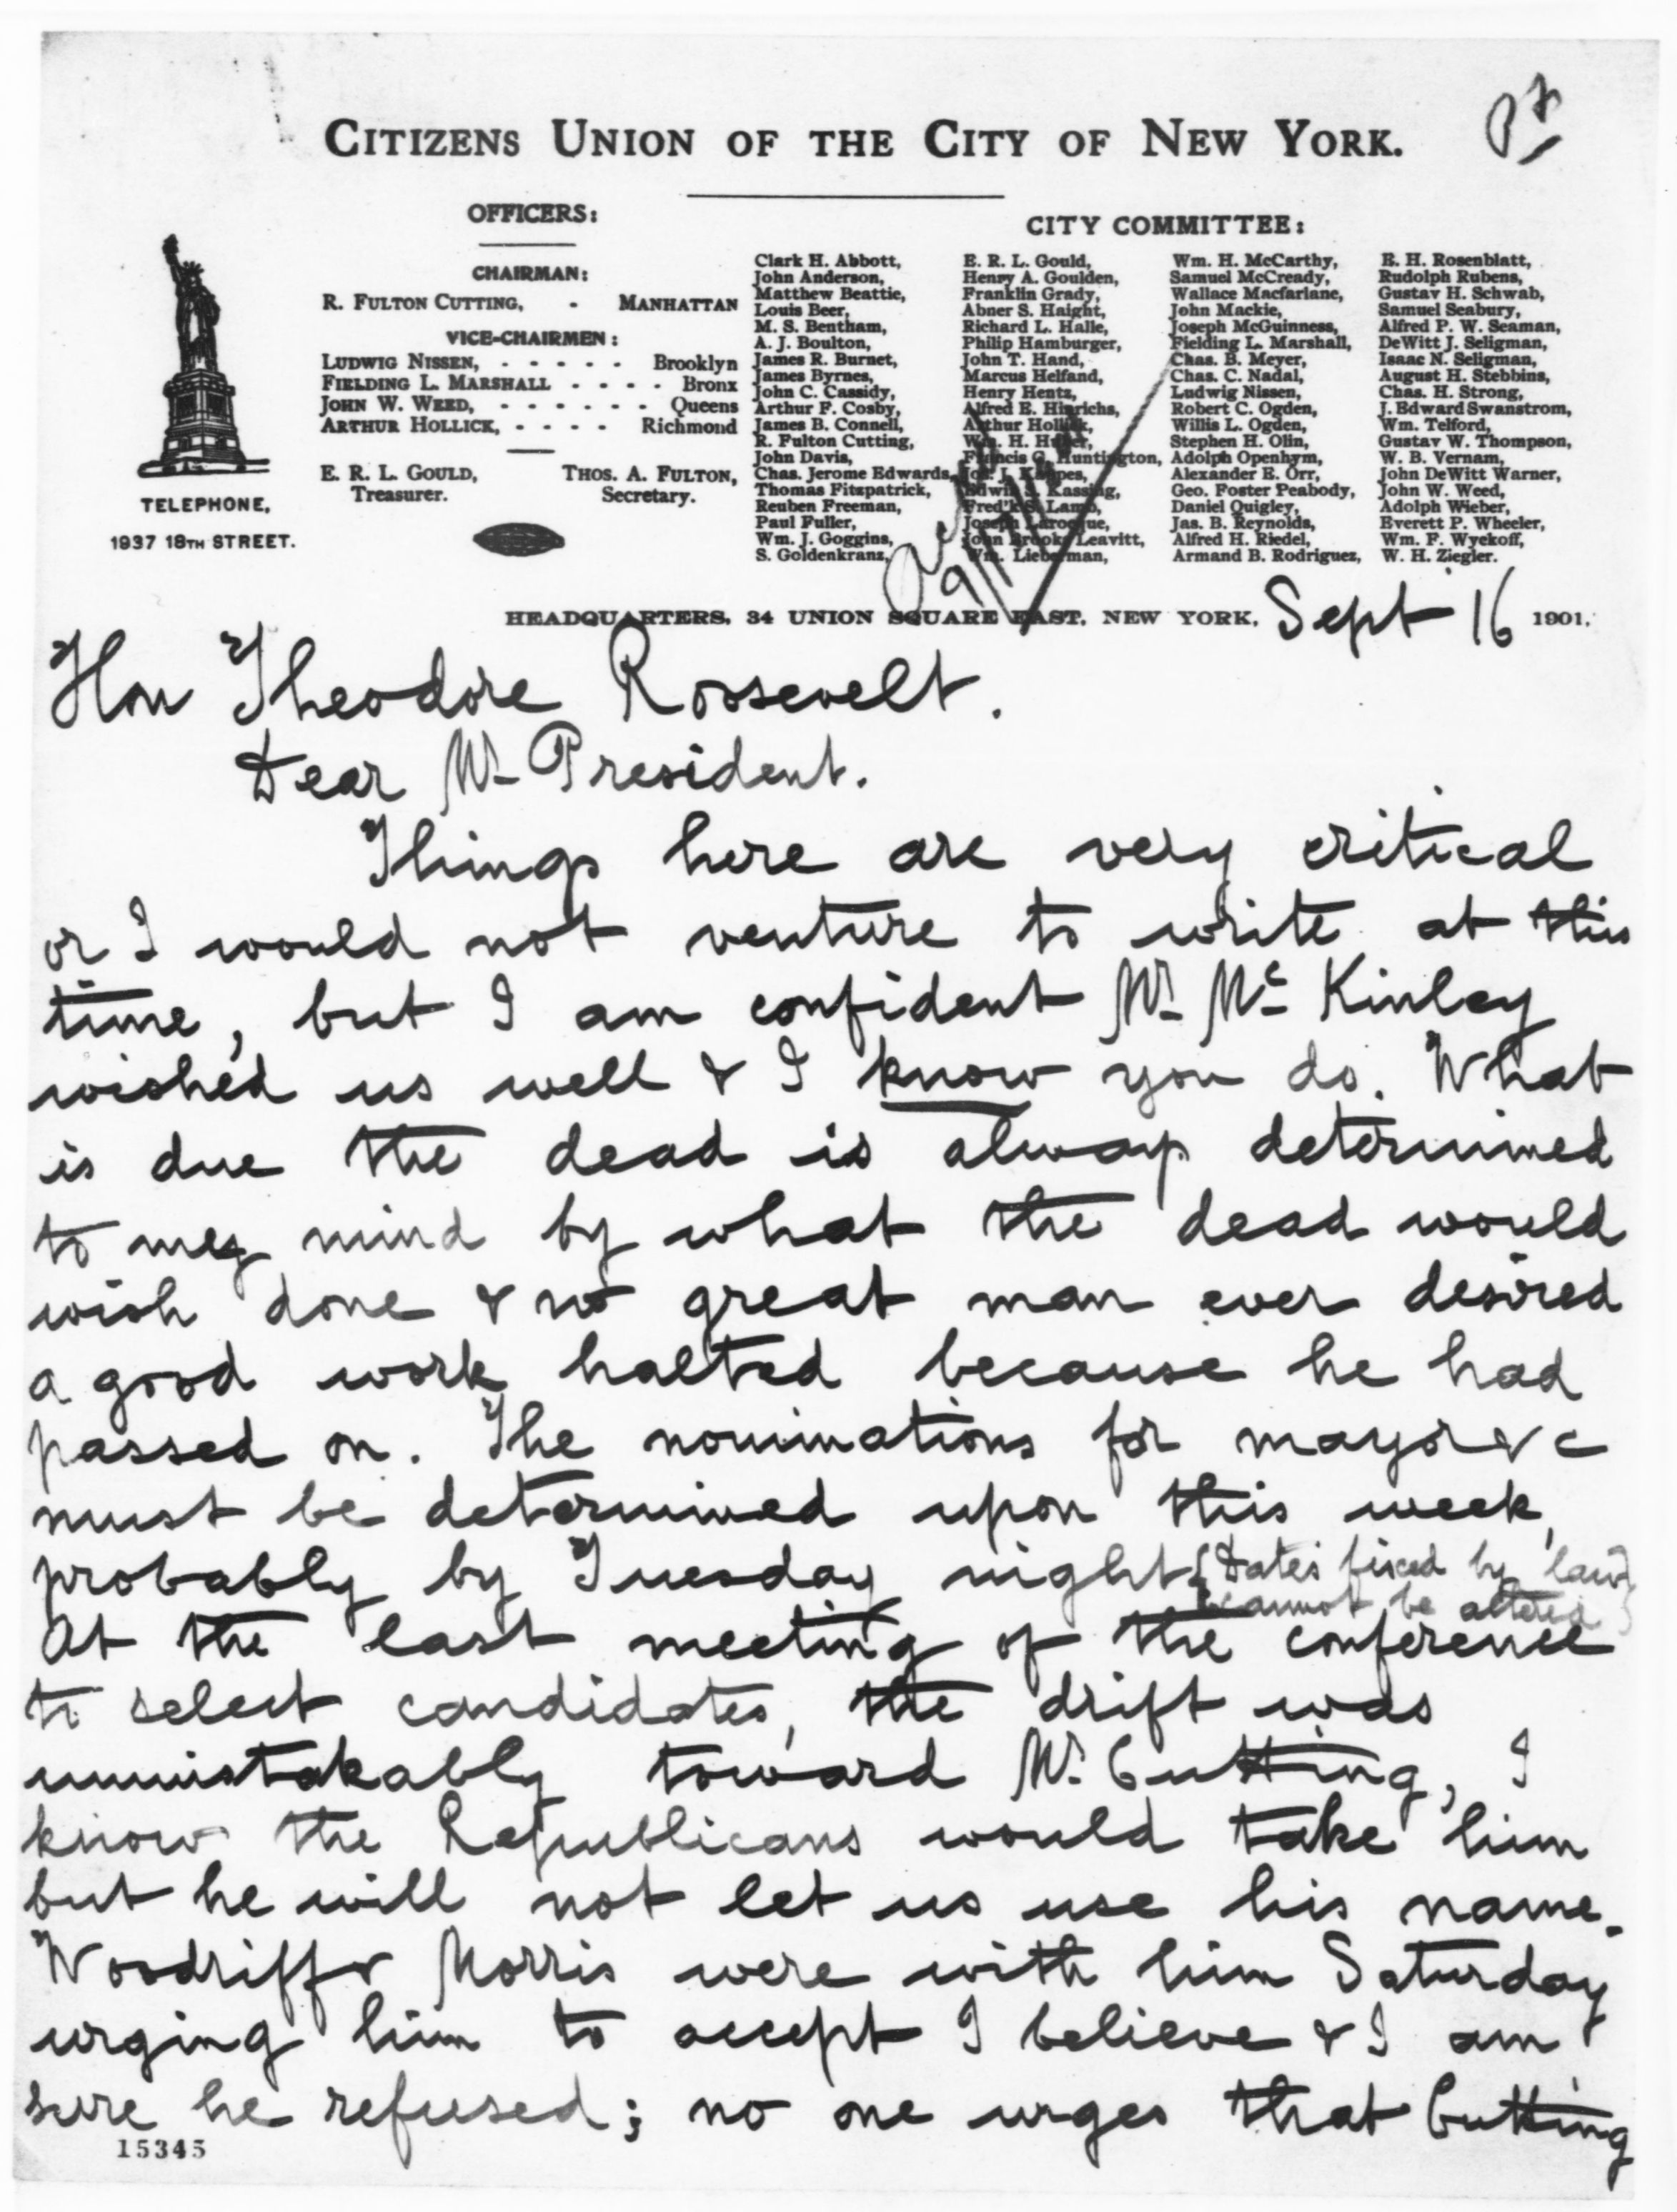 CITIZENS UNION OF THE CITY OF NEW YORK.
OFFICERS:
CHAIRMAN:
R. FULTON CUTTING, - MANHATTAN
VICE-CHAIRMEN:
LUDWIG NISSEN, - - - - - Brooklyn
FIELDING L. MARSHALL - - - - Bronx
JOHN W. WEED, - - - - - - - Queens
ARTHUR HOLLICK, - - - - Richmond
E. R. L. GOULD,
Treasurer.
THOS. A. FULTON,
Secretary.
TELEPHONE,
1937 18TH STREET.
CITY COMMITTEE:
Clark H. Abbott,
John Anderson,
Matthew Beattie,
Louis Beer,
M. S. Bentham,
A. J. Boulton,
James R. Burnet,
James Byrnes,
John C. Cassidy,
Arthur F. Cosby,
James B. Connell,
R. Fulton Cutting,
John Davis,
Chas. Jerome Edwards,
Thomas Fitzpatrick,
Reuben Freeman,
Paul Fuller,
Wm. J. Goggins,
S. Goldenkranz,
E. R. L. Gould,
Henry A. Goulden,
Franklin Grady,
Abner S. Haight,
Richard L. Halle,
Philip Hamburger,
John T. Hand,
Marcus Helfand,
Henry Hentz,
Alfred E. Hinrichs,
Arthur Hollick,
Wm. H. Huber,
Francis G. Huntington,
Jos. J. Kappes,
Edwin S. Kassing,
Fred'k S. Lamb,
Joseph Larocque,
John Brooks Leavitt,
Wm. Lieberman,
Wm. H. McCarthy,
Samuel McCready,
Wallace Macfarlane,
John Mackie,
Joseph McGuinness,
Fielding L. Marshall,
Chas. B. Meyer,
Chas. C. Nadal,
Ludwig Nissen,
Robert C. Ogden,
Willis L. Ogden,
Stephen H. Olin,
Adolph Openhym,
Alexander E. Orr,
Geo. Foster Peabody,
Daniel Quigley,
Jas. B. Reynolds,
Alfred H. Riedel,
Armand B. Rodriguez,
E. H. Rosenblatt,
Rudolph Rubens,
Gustav H. Schwab,
Samuel Seabury,
Alfred P. W. Seaman,
DeWitt J. Seligman,
Isaac N. Seligman,
August H. Stebbins,
Chas. H. Strong,
J. Edward Swanstrom,
Wm. Telford,
Gustav W. Thompson,
W. B. Vernam,
John DeWitt Warner,
John W. Weed,
Adolph Wieber,
Everett P. Wheeler,
Wm. F. Wyckoff,
W. H. Ziegler.
HEADQUARTERS, 34 UNION SQUARE EAST, NEW YORK, Sept 16 1901.
Hon Theodore Roosevelt.
Dear Mr President.
Things here are very critical
or I would not venture to write at this
time, but I am confident Mr McKinley
wished us well & I know you do. What
is due the dead is always determined
to my mind by what the dead would
wish done & no great man ever desired
a good work halted because he had
passed on. The nominations for mayor &c
must be determined upon this week,
probably by Tuesday night {Dates fixed by law
cannot be altered}
At the last meeting of the conference
to select candidates, the drift was
unmistakably toward Mr. Cutting, I
know the Republicans would take him
but he will not let us use his name.
Woodriff & Morris were with him Saturday
urging him to accept I believe & I am
sure he refused; no one urges that Cutting
15345